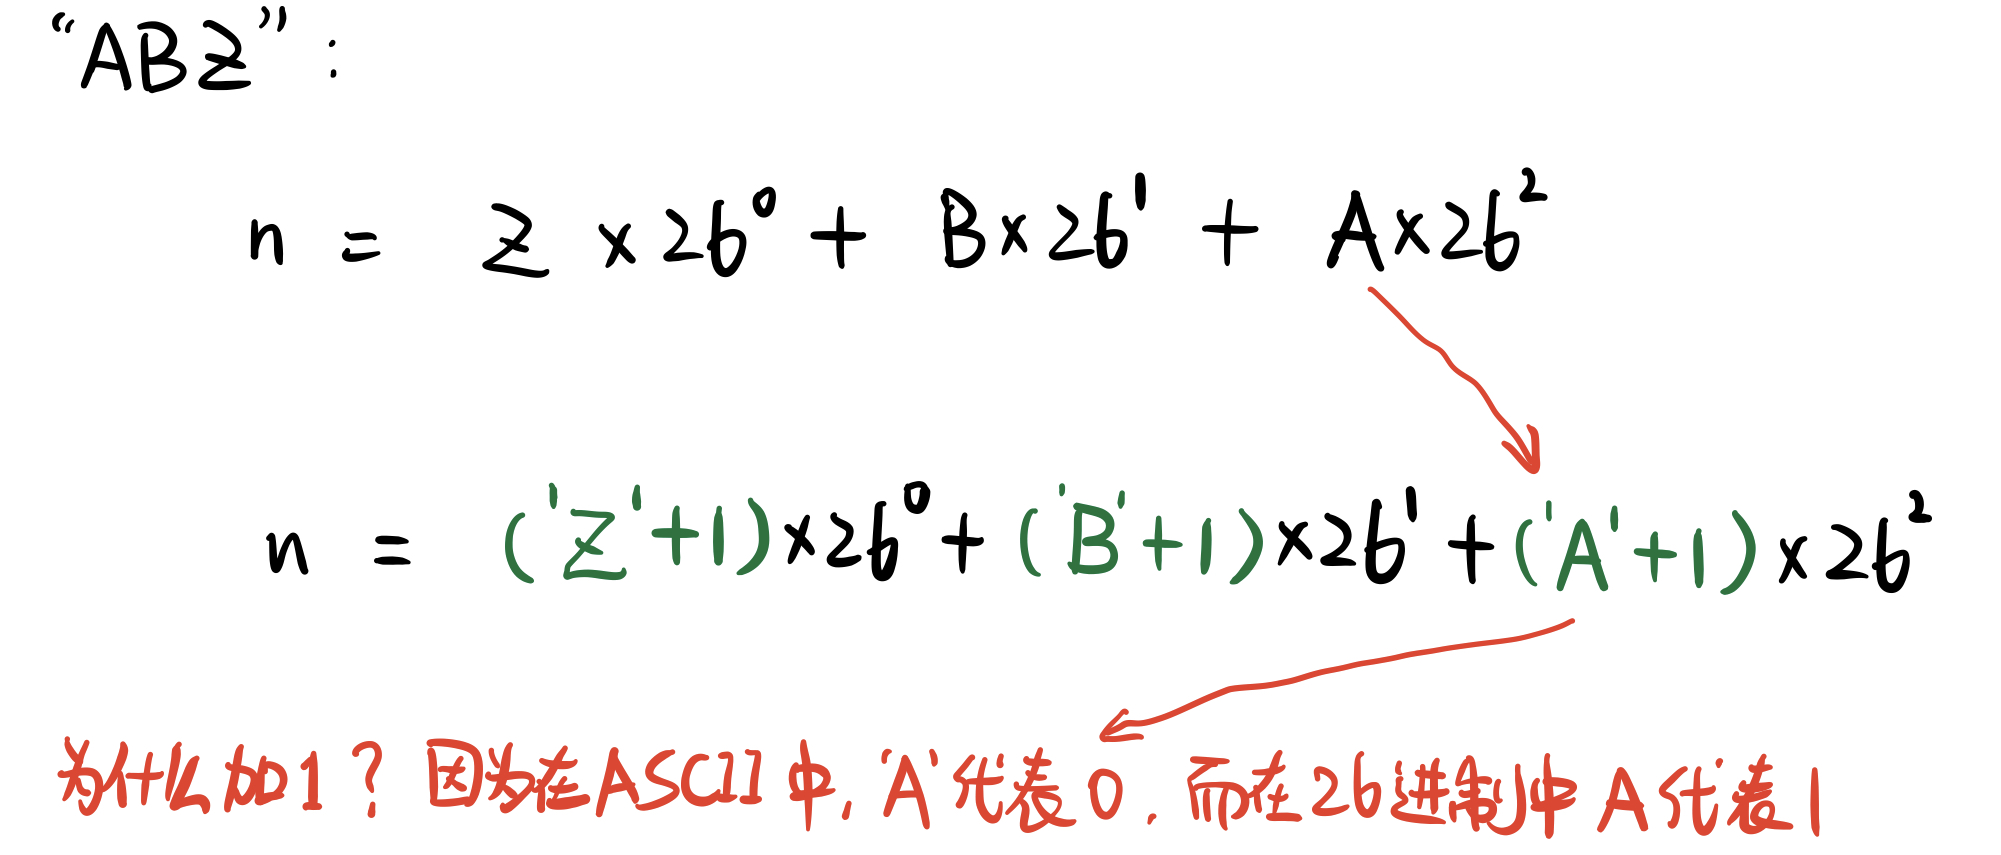 “ABZ”：
n = Z × 26⁰ + B × 26¹ + A × 26²
n = ('Z'+1) × 26⁰ + ('B'+1) × 26¹ + ('A'+1) × 26²
为什么加1？因为在ASCII中，'A'代表0．而在26进制中A代表1